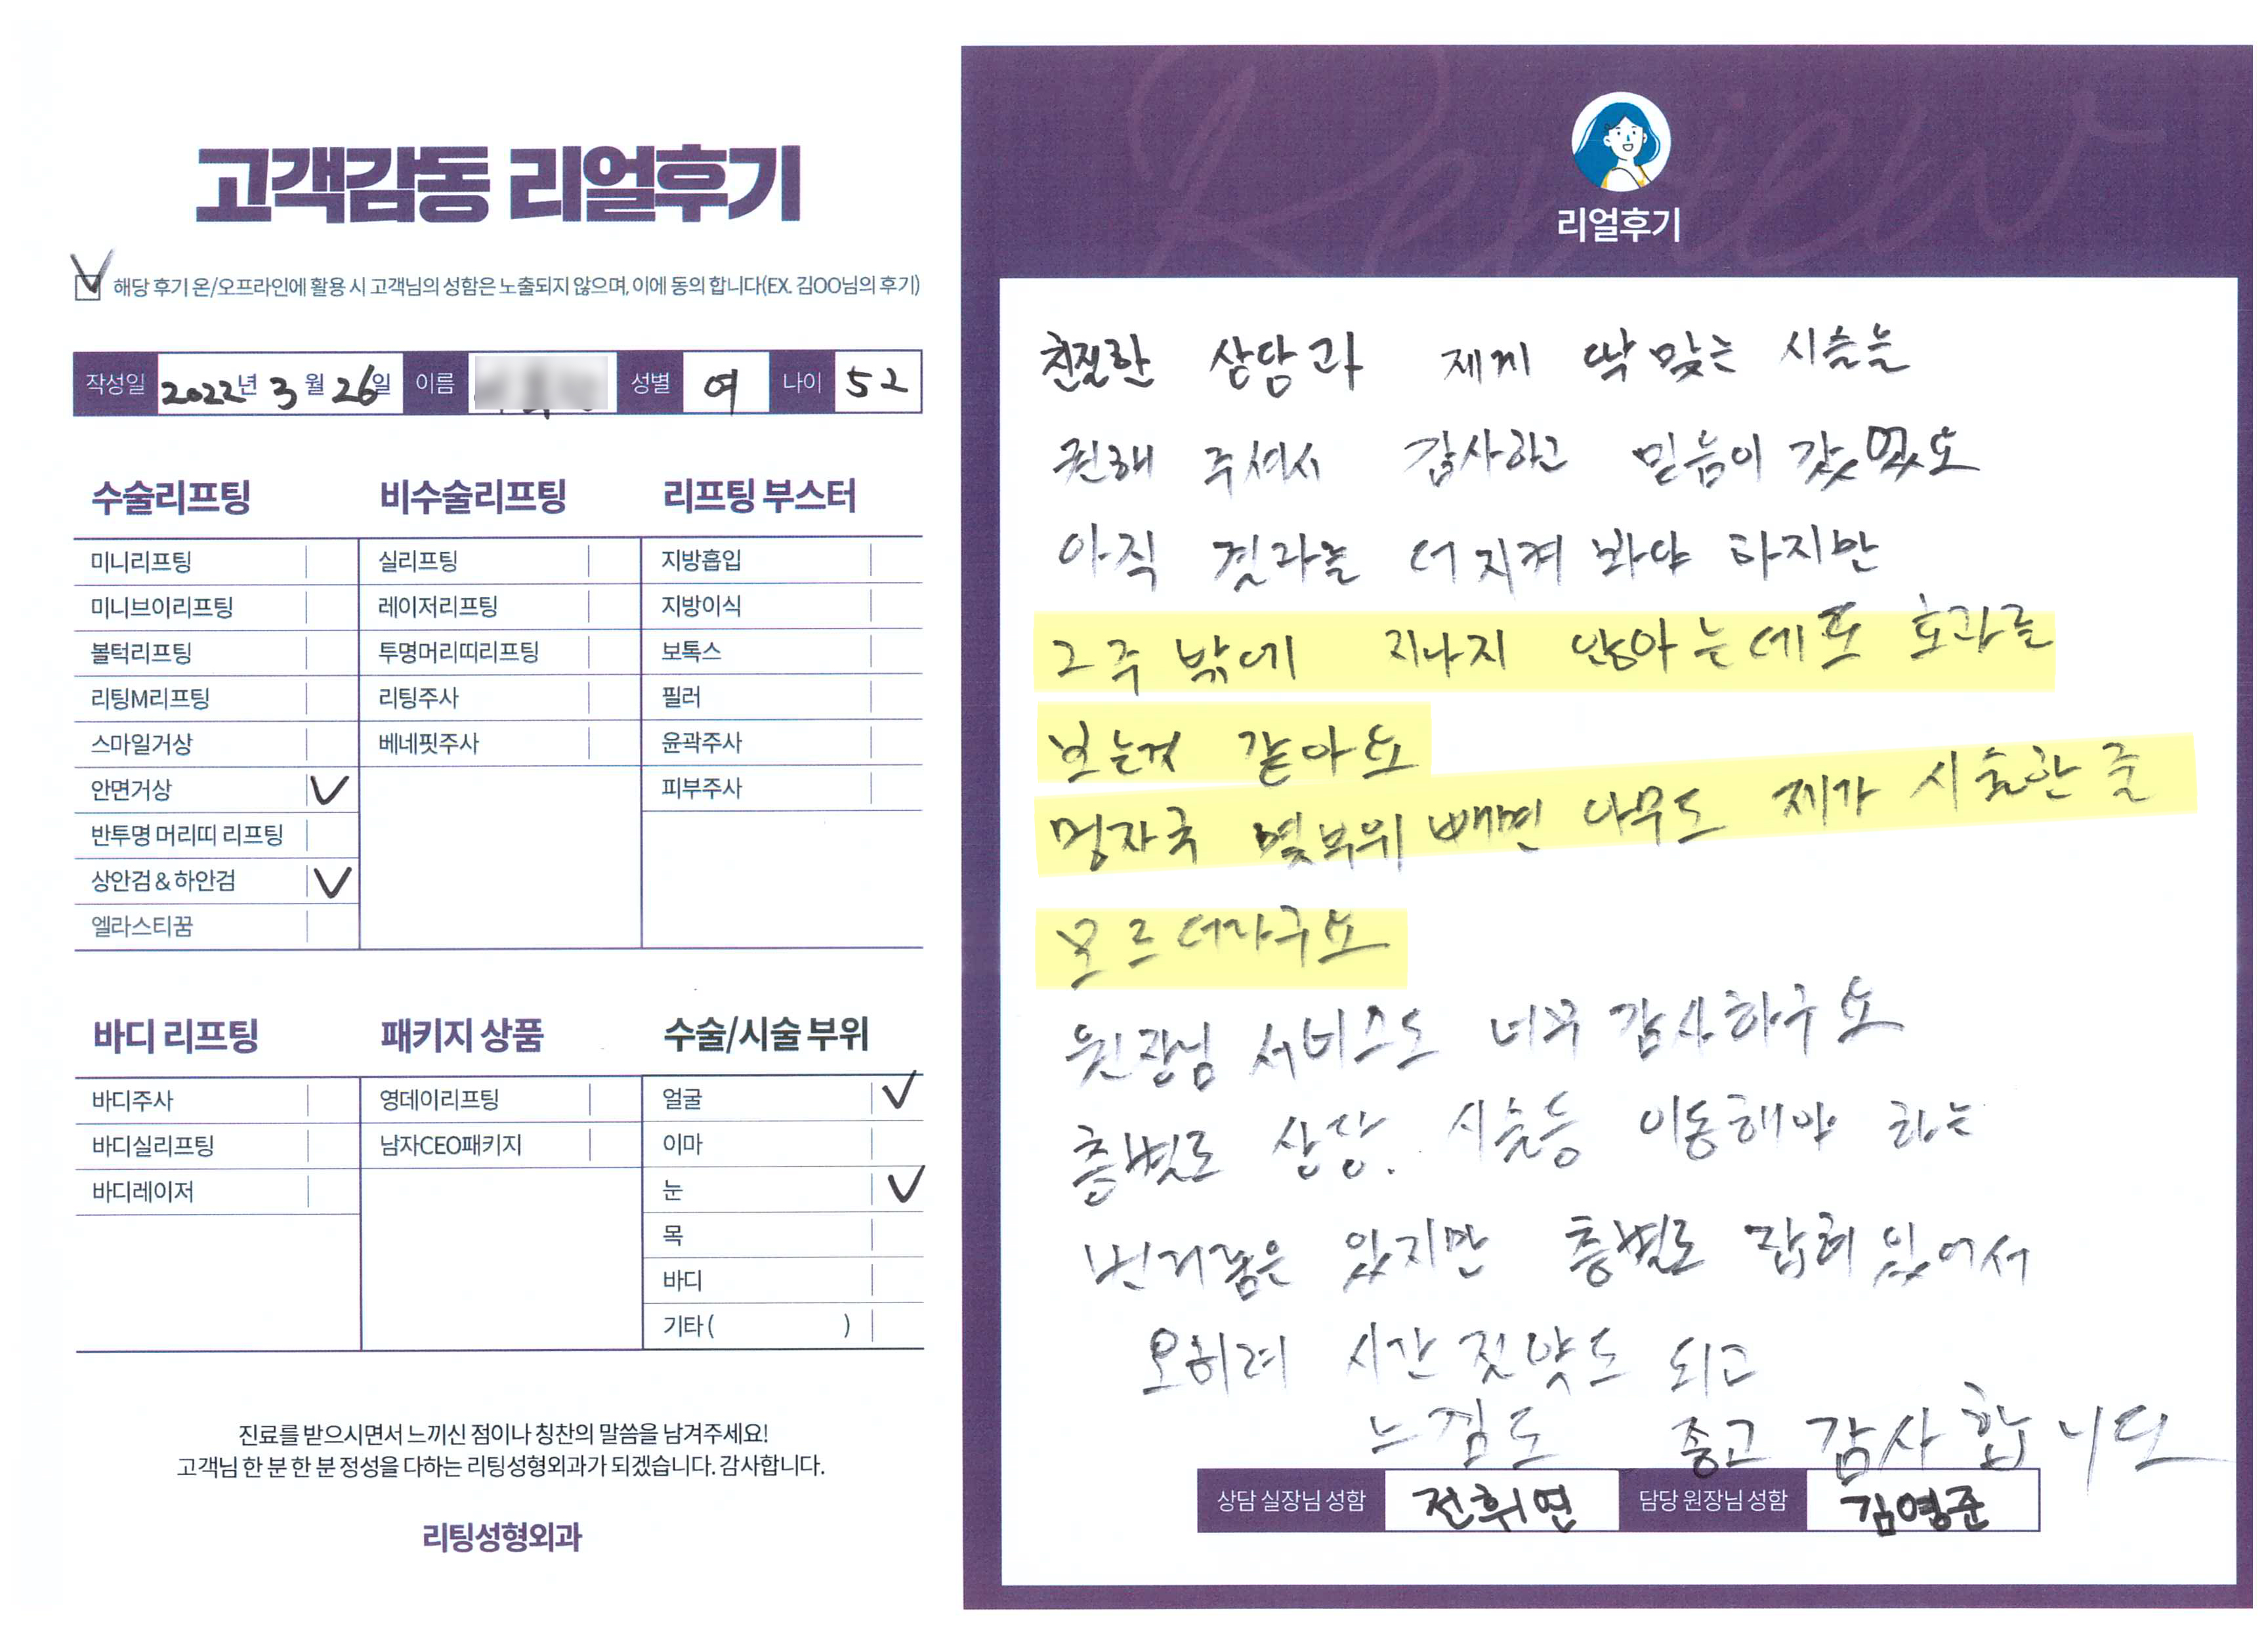 고객감동 리얼후기
해당 후기 온/오프라인에 활용 시 고객님의 성함은 노출되지 않으며, 이에 동의 합니다(EX. 김OO님의 후기)
작성일 2022년 3월 26일 이름 성별 여 나이 52
수술리프팅
미니리프팅
미니브이리프팅
볼턱리프팅
리팅M리프팅
스마일거상
안면거상 ✓
반투명 머리띠 리프팅
상안검 & 하안검 ✓
엘라스티꿈
비수술리프팅
실리프팅
레이저리프팅
투명머리띠리프팅
리팅주사
베네핏주사
리프팅 부스터
지방흡입
지방이식
보톡스
필러
윤곽주사
피부주사
바디 리프팅
바디주사
바디실리프팅
바디레이저
패키지 상품
영데이리프팅
남자CEO패키지
수술/시술 부위
얼굴 ✓
이마
눈 ✓
목
바디
기타 ( )
진료를 받으시면서 느끼신 점이나 칭찬의 말씀을 남겨주세요!
고객님 한 분 한 분 정성을 다하는 리팅성형외과가 되겠습니다. 감사합니다.
리팅성형외과
Review
리얼후기
친절한 상담과 제게 딱 맞는 시술을
권해 주셔서 감사하고 믿음이 갔
아직 결과는 더 지켜 봐야 하지만
2주 밖에 지나지 않아는데도 효과를
보는것 같아요
멍자국 몇부위 빼면 아무도 제가 시술한 줄
모르더라구요
원장님 서비스도 너무 감사하구요
층별로 상담. 시술등 이동해야 하는
번거품은 있지만 층별로 잡혀 있어서
오히려 시간 절약도 되고
느낌도 좋고 감사합니다
상담 실장님 성함 전휘연 담당 원장님 성함 김영준